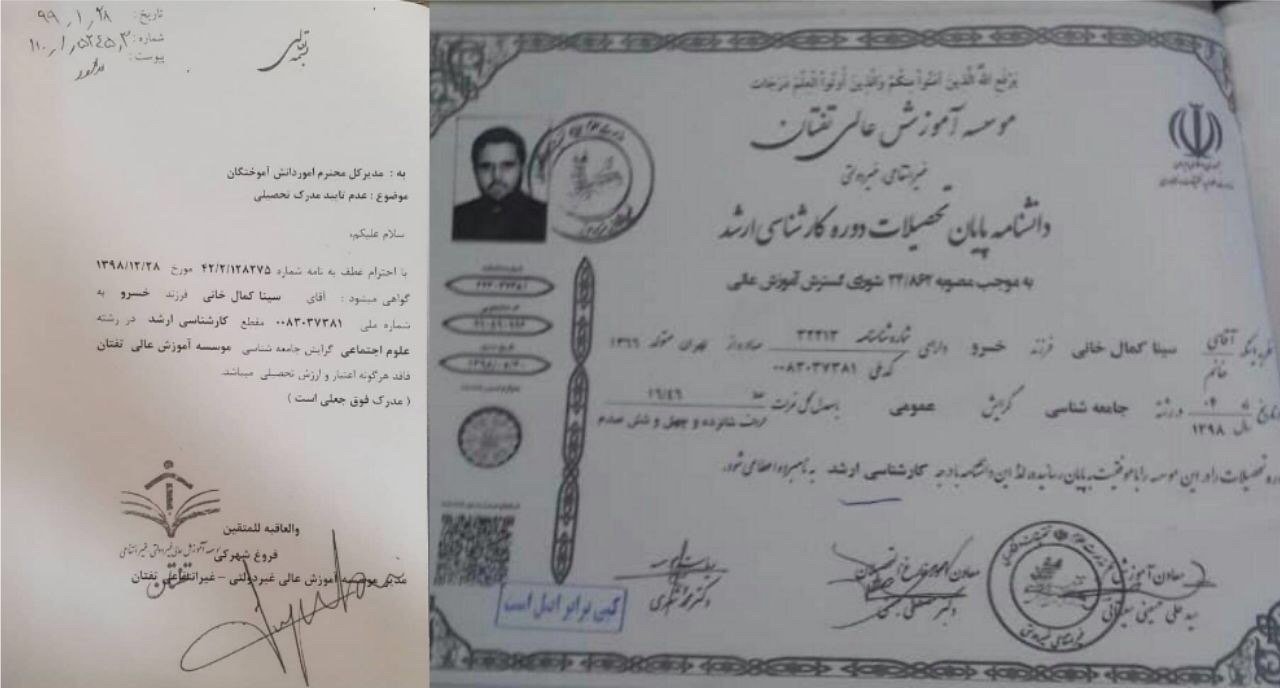 تاریخ: ۹۹/۱/۲۸
شماره: ۱۱۰/۱/۵۲۴۵/۳
پیوست:
بسمه تعالی
به : مدیرکل محترم اموردانش آموختگان
موضوع : عدم تایید مدرک تحصیلی
سلام علیکم،
با احترام عطف به نامه شماره ۴۲/۲/۱۲۸۲۷۵ مورخ ۱۳۹۸/۱۲/۲۸
گواهی میشود : آقای سینا کمال خانی فرزند خسرو به
شماره ملی ۰۰۸۳۰۳۷۳۸۱ مقطع کارشناسی ارشد در رشته
علوم اجتماعی گرایش جامعه شناسی موسسه آموزش عالی تفتان
فاقد هرگونه اعتبار و ارزش تحصیلی میباشد.
( مدرک فوق جعلی است )
والعاقبه للمتقین
موسسه آموزش عالی غیردولتی غیرانتفاعی
فروغ شهرکی
تفتان
مدیر موسسه آموزش عالی غیردولتی – غیرانتفاعی تفتان
یَرْفَعِ اللهُ الَّذینَ آمَنُواْ مِنکُمْ وَالَّذینَ أُوتُواْ الْعِلْمَ دَرَجَاتٍ
موسسه آموزش عالی تفتان
غیرانتفاعی غیردولتی
دانشنامه پایان تحصیلات دوره کارشناسی ارشد
به موجب مصوبه ۲۲/۸۶۲ شورای گسترش آموزش عالی
نظر به اینکه آقای خانم سینا کمال خانی فرزند خسرو دارای شماره شناسنامه ۳۲۴۱۳ کد ملی ۰۰۸۳۰۳۷۳۸۱ صادره از تهران متولد ۱۳۶۶
تاریخ سال ۱۳۹۸ در رشته جامعه شناسی گرایش عمومی با معدل کل نمرات عدد ۱۶/۴۶ حروف شانزده و چهل و شش صدم
دوره تحصیلات را در این موسسه را با موفقیت به پایان رسانیده، لذا این دانشنامه با درجه کارشناسی ارشد به نامبرده اعطا می شود.
معاون آموزشی
سید علی حسینی
دکتر مصطفی
ریاست موسسه
دکتر محمد
غیرانتفاعی غیردولتی
کپی برابر اصل است